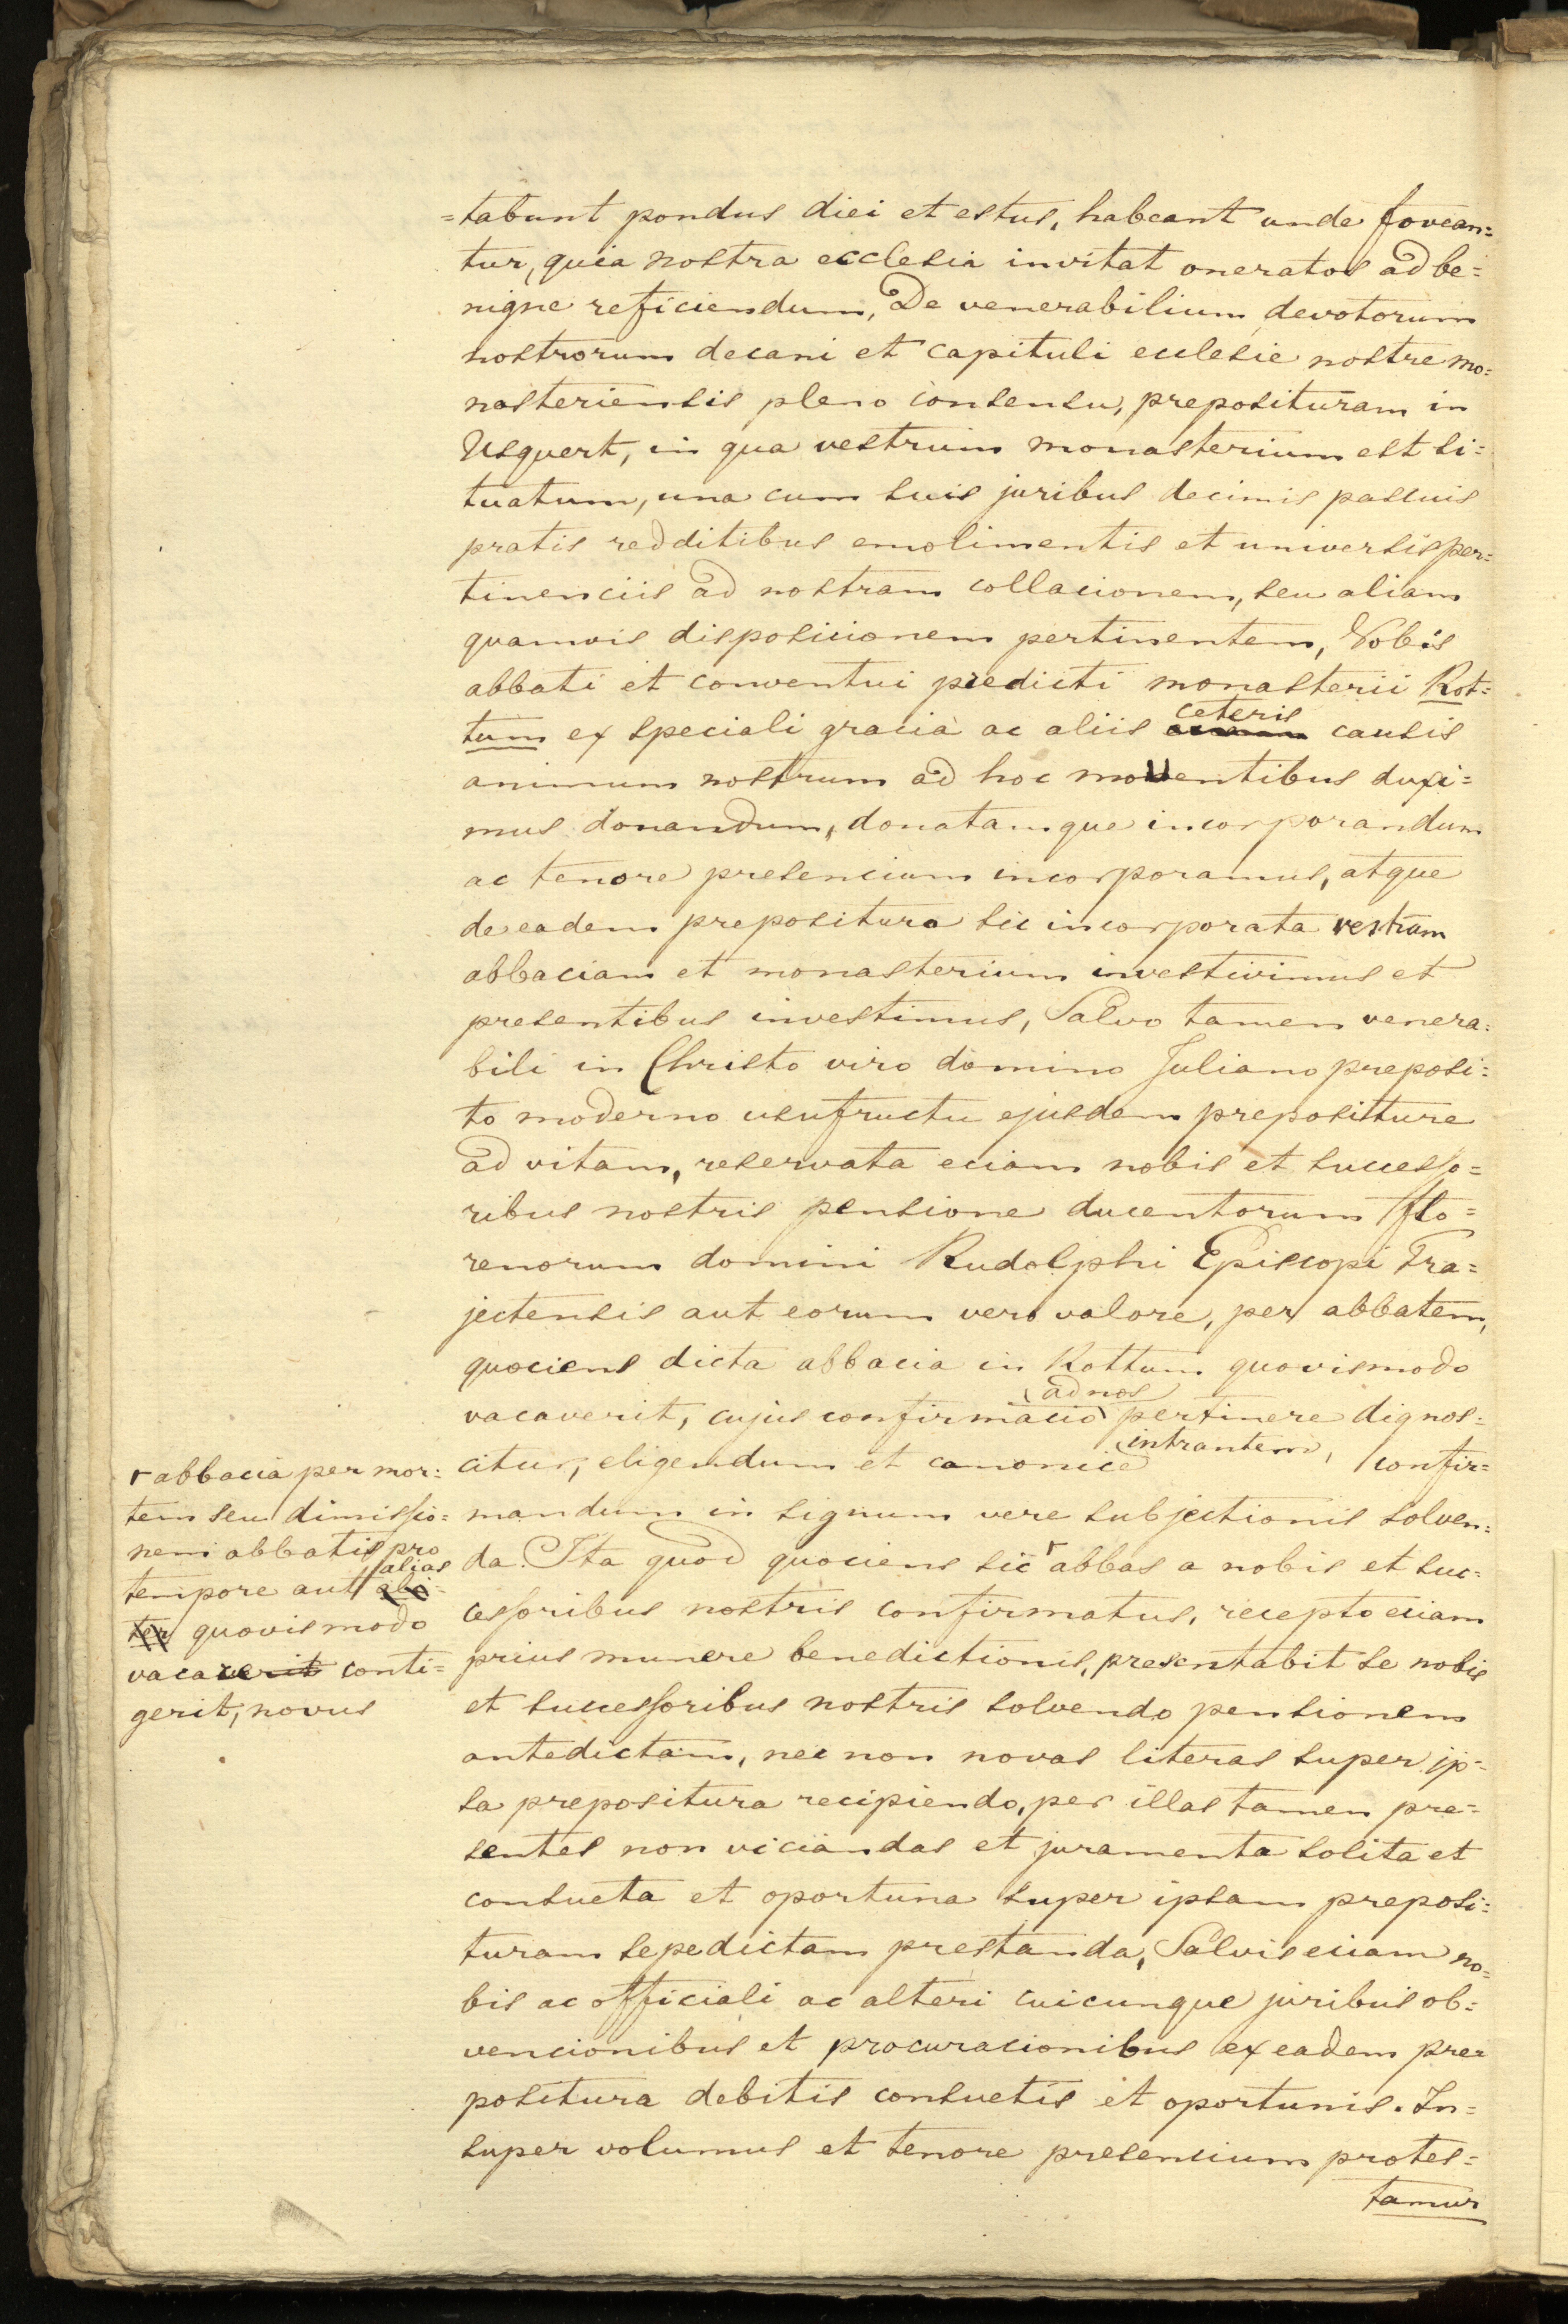 =tabunt pondus diei et estus, habeant unde fovean=
tur, quia nostra ecclesia invitat oneratos ad be=
nigne reficiendum, De venerabilium devotorum
nostrorum decani et capituli ecclesie nostre mo=
nasteriensis pleno consensu, preposituram in
Usquert, in qua vestrum monasterium est si=
tuatum, una cum suis juribus decimis pascuis
pratis redditibus emolimentis et universis per=
tinenciis ad nostram collacionem, seu aliam
quamvis disposicionem pertinentem, Vobis
abbati et conventui predicti monasterii Rot=
tum ex speciali gracia ac aliis ceteris causis
animum nostrum ad hoc moventibus duxi=
mus donandum, donatamque incorporandum
ac tenore presencium incorporamus, atque
de eadem prepositura sic incorporata vestram
abbaciam et monasterium investivimus et
presentibus investimus, Salvo tamen venera=
bili in Christo viro domino Juliano preposi=
to moderno usufructu ejusdem prepositure
ad vitam, reservata eciam nobis et successo=
ribus nostris pensione ducentorum flo=
renorum domini Rudolphi Episcopi Tra=
jectensis aut eorum vero valore, per abbatem,
quociens dicta abbacia in Rottum quovismodo
vacaverit, cujus confirmacio ad nos pertinere dignos=
citur, eligendum et canonice intrantem, confir=
mandum in signum vere subjectionis solven=
da. Ita quod quociens sic ⌈ abbas a nobis et suc=
cessoribus nostris confirmatus, recepto eciam
prius munere benedictionis, presentabit se nobis
et successoribus nostris solvendo pensionem
antedictam, nec non novas literas super ip=
sa prepositura recipiendo, per illas tamen pre=
sentes non viciandas et juramenta solita et
consueta et oportuna super ipsam preposi=
turam sepedictam prestanda, Salvis eciam no=
bis ac officiali ac alteri cuicunque juribus ob=
vencionibus et procuracionibus ex eadem pre=
positura debitis consuetis et oportunis. In=
super volumus et tenore presencium protes=
tamur
⌈ abbacia per mor=
tem seu dimissio=
nem abbatis pro
tempore aut alias ali=
ter quovismodo
vacaverit conti=
gerit, novus